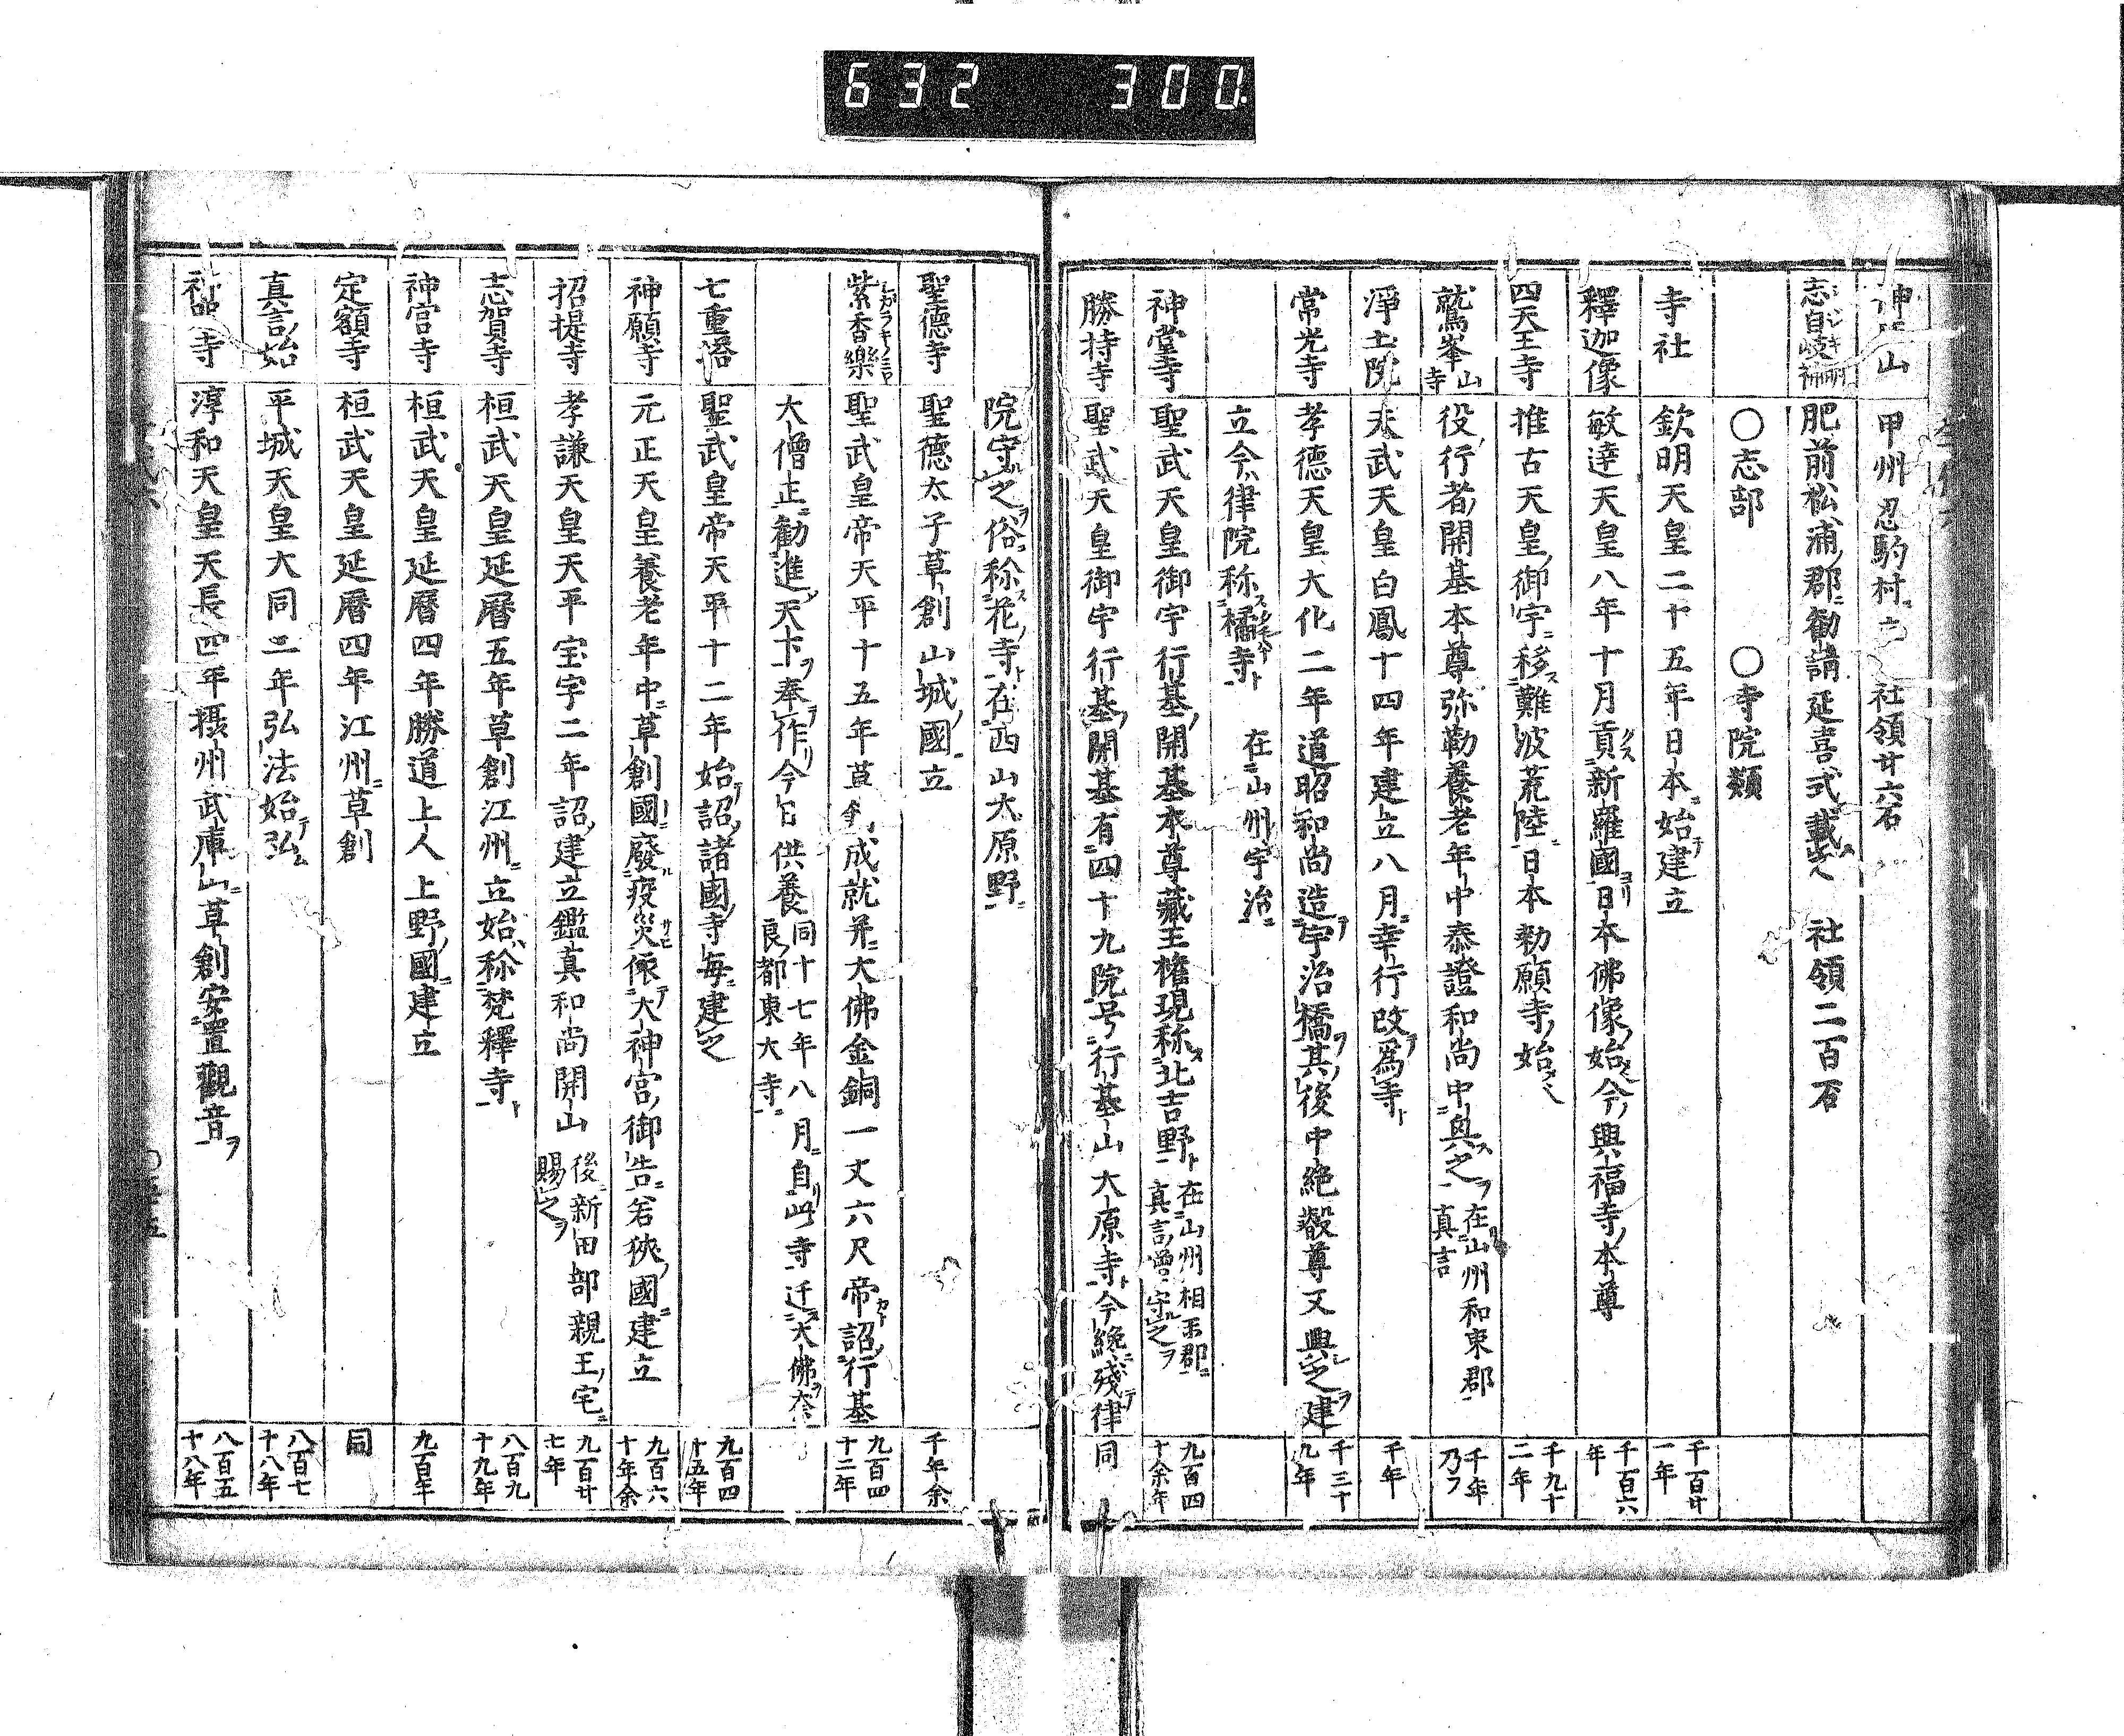 632 300
山 甲州忍駒村ニ 社領廿六石
志自岐神 肥前松浦ノ郡ニ勧請延喜式載 社領二百石
〇志部 〇寺院類
寺社 欽明天皇二十五年日本ニ始テ建立 千百廿一年
釋迦像 敏達天皇八年十月貢ス新羅國ヨリ日本佛像ノ始今ノ興福寺ノ本尊 千百六年
四天王寺 推古天皇ノ御宇ニ移ス難波荒陵ニ日本勅願寺ノ始 千九十二年
鷲峯山寺 役ノ行者ノ開基本尊弥勒養老年中泰證和尚中興ス之ヲ 在山州和束郡真言 千年乃フ
淨土院 天武天皇白鳳十四年建立八月ニ幸行改為寺ト 千年
常光寺 孝德天皇大化二年道昭和尚造宇治橋ヲ其後中絶叡尊又興之ヲ建 千三十九年
立今ハ律院称ス橘寺ト 在山州宇治ニ
神堂寺 聖武天皇御宇行基ノ開基本尊藏王權現称ス北吉野ト 在山州相楽郡ニ真言ノ僧守之ヲ 九百四十余年
勝持寺 聖武天皇御宇行基ノ開基有四十九院号行基山大原寺ト今纔ニ殘テ律 同
院守之ヲ俗ニ称花ノ寺ト在西山大原野ニ
聖德寺 聖德太子草創山城ノ國ニ立 千年余
紫香樂 聖武皇帝天平十五年草創成就并ニ大佛金銅一丈六尺帝詔行基 九百四十二年
大僧正ニ勧進天下ヲ奉作今日供養 同十七年八月ニ自此寺迁大佛ヲ奈良ノ都東大寺ニ
七重塔 聖武皇帝天平十二年始テ詔諸國ノ寺每ニ建之 九百四十五年
神願寺 元正天皇養老年中ニ草創國ニ發疫災依テ大神宮ノ御告ニ若狹ノ國ニ建立 九百六十年余
招提寺 孝謙天皇天平宝字二年詔建立鑑真和尚開山 後ニ新田部親王ノ宅ニ賜之ヲ 九百廿七年
志賀寺 桓武天皇延暦五年草創江州ニ立始ハ称梵釋寺ト 八百九十九年
神宮寺 桓武天皇延暦四年勝道上人上野ノ國ニ建立 九百年
定額寺 桓武天皇延暦四年江州ニ草創 同
真言ノ始 平城天皇大同二年弘法始テ弘ム 八百七十八年
寺 淳和天皇天長四年摂州武庫山ニ草創安置觀音ヲ 八百五十八年